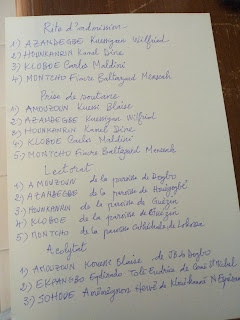 Rite d'admission
1) AZANDEGBE Kuessigan Wilfried
2) HOUNKANRIN Karel Dine
3) KLOBOE Carlos Maldini
4) MONTCHO Fiacre Baltazard Mensah
Prise de soutane
1) AMOUZOUN Kuessi Blaise
2) AZANDEGBE Kuessigan Wilfrid
3) HOUNKANRIN Karel Dine
4) KLOBOE Carlo Maldini
5) MONTCHO Fiacre Baltazard Mensah
Lectorat
1) AMOUZOUN de la paroisse de Dogbo
2) AZANDEGBE de la paroisse de
3) HOUNKANRIN de la paroisse de Guézin
4) KLOBOE de la paroisse de Guézin
5) MONTCHO de la paroisse Cathédrale de Lokossa
Acolytat
1) AMOUZOUN Kouessi Blaise de JB de Dogbo
2) EKPANGBO de Comé St Michel
3) SOHOUE Hervé de